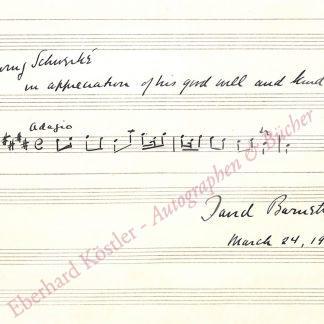 in appreciation of his good will and
Adagio
David Barnett
March 24, 19
Eberhard Köstler - Autographen & Bücher